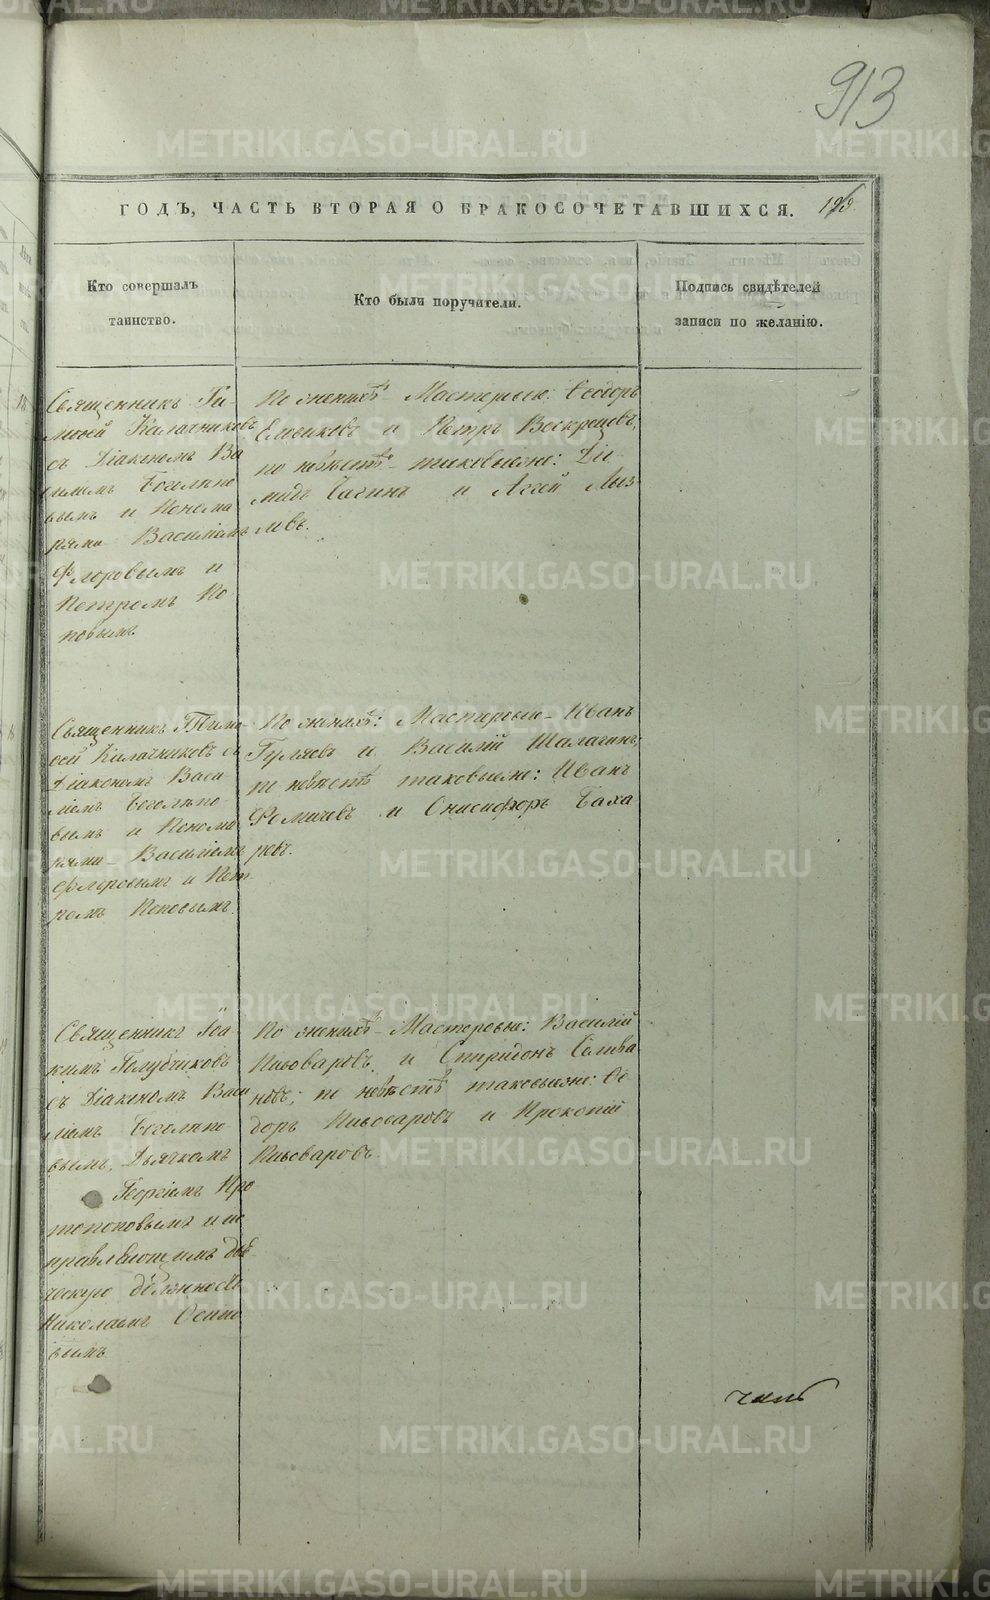 913
ГОДЪ, ЧАСТЬ ВТОРАЯ О БРАКОСОЧЕТАВШИХСЯ.
Кто совершалъ
таинство.
Кто были поручители.
Подпись свидѣтелей
записи по желанію.
Священникъ Ти-
моѳей Калачниковъ
съ Діакономъ Ва
силіемъ Боголѣпо
вымъ и Понома
рями Василіемъ
Флоровымъ и
Петромъ По
повымъ
По женихѣ Мастеровые: Ѳеодоръ
и Петръ Воскрецовъ,
по невѣстѣ таковыеже: Ді-
мидъ и
Священникъ Тимо-
ѳей Калачниковъ съ
Діакономъ Васи
ліемъ Боголѣпо-
вымъ и Понома
рями Василіемъ
Флоровымъ и Пет
ромъ Поповымъ.
По женихѣ: Мастеровые Иванъ
Гуляевъ и Василій Шалагинъ,
по невѣстѣ таковыеже: Иванъ
Фомичевъ и Онисифоръ Баха
ревъ.
Священникъ Іоа
кимъ Голубчиковъ
съ Діакономъ Васи
ліемъ Боголѣпо
вымъ, Дьячкомъ
Георгіемъ Про
топоповымъ и ис
правляющимъ дья-
ческую должность
Николаемъ Осипо
вымъ
По женихѣ Мастеровые: Василій
Пивоваровъ и Спиридонъ Селива
новъ; по невѣстѣ таковыеже: Ѳе-
доръ Пивоваровъ и Прокопій
Пивоваровъ
часть
METRIKI.GASO-URAL.RU